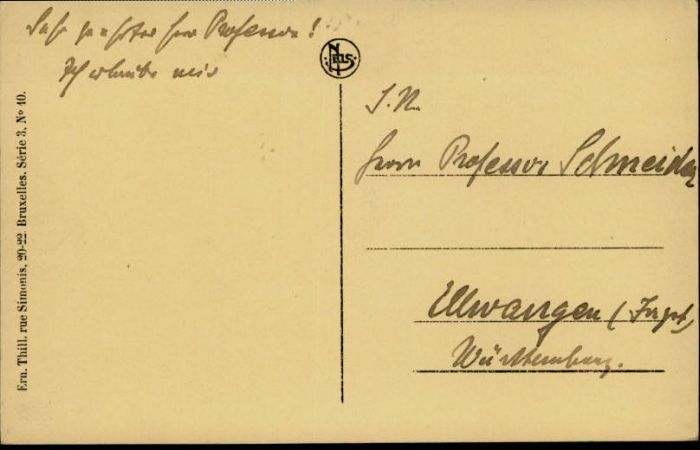 Sehr geehrter Herr Professor!
Ich erlaube mir
Nels
S. H.
Herrn Professor Schneider
Ellwangen (Jagst)
Württemberg.
Ern. Thill. rue Simonis, 20-22. Bruxelles. Série 3. Nº 10.